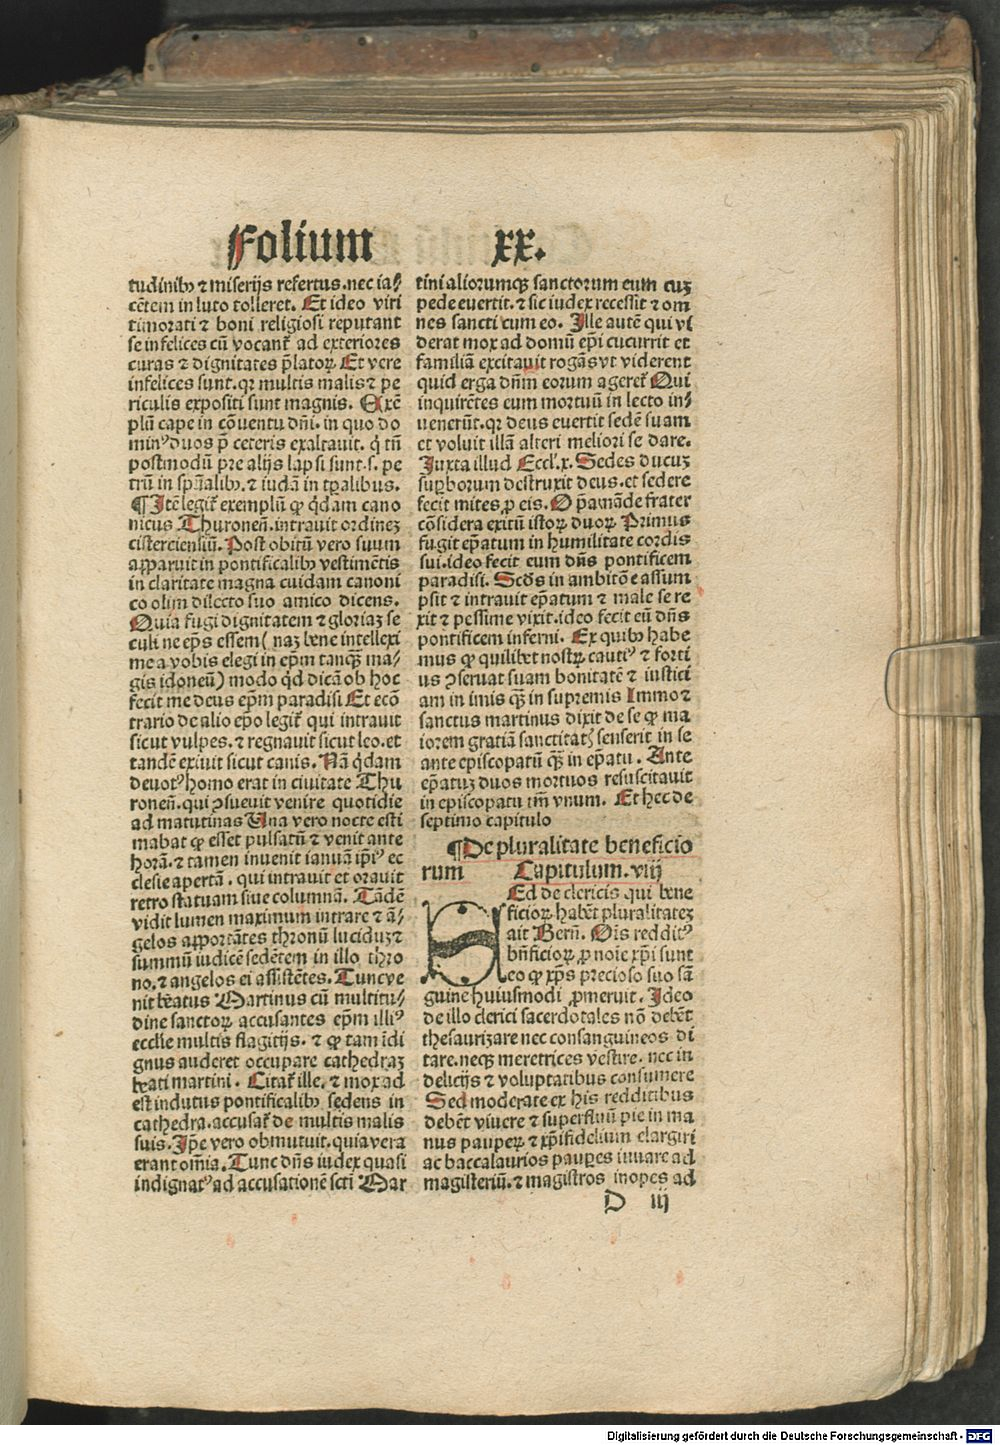 Folium XX.
tudinibꝰ ⁊ miserijs refertus. nec ia-
cētem in luto tolleret. Et ideo viri
timorati ⁊ boni religiosi reputant
se infelices cū vocant᷑ ad exteriores
curas ⁊ dignitates p̄latoꝝ. Et vere
infelices sunt. qꝛ multis malis ⁊ pe
riculis expositi sunt magnis. Exē
plū cape in cōuentu dn̄i. in quo do
minꝰ duos p̄ ceteris exaltauit. q̇ tn̄
postmodū p̄re alijs lapsi sunt. s. pe
trū in sp̄nalibꝰ. ⁊ iudā in tp̄alibus.
¶ Itē legit᷑ exemplū ꝙ q̇dam cano
nicus Thuroneñ. intrauit ordineꝫ
cisterciensiū. Post obitū vero suum
apparuit in pontificalibꝰ vestimētis
in claritate magna cuidam canoni
co olim dilecto suo amico dicens.
Quia fugi dignitatem ⁊ gloriaꝫ se
culi ne ep̄s essem (naꝫ bene intellexi
me a vobis elegi in ep̄m tanqꝫ̄ ma-
gis idoneū) modo qd̓ dicā ob hoc
fecit me deus ep̄m paradisi Et ecō
trario de alio ep̄o legit᷑ qui intrauit
sicut vulpes. ⁊ regnauit sicut leo. et
tandē exiuit sicut canis. Nā q̇dam
deuotꝰ homo erat in ciuitate Thu
roneñ. qui ꝯsueuit venire quotidie
ad matutinas Una vero nocte esti
mabat ꝙ esset pulsatū ⁊ venit ante
horā. ⁊ tamen inuenit ianuā ip̄iꝰ ec
clesie apertā. qui intrauit et orauit
retro statuam siue columnā. Tādē
vidit lumen maximum intrare ⁊ ā-
gelos apportātes thronū luciduꝫ ⁊
summū iudicē sedētem in illo thro
no. ⁊ angelos ei assistētes. Tunc ve
nit beatus Martinus cū multitu-
dine sanctoꝝ accusantes ep̄m illiꝰ
ecclie multis flagitijs. ⁊ ꝙ tam īdi
gnus auderet occupare cathedraꝫ
beati martini. Citat᷑ ille. ⁊ mox ad
est indutus pontificalibꝰ sedens in
cathedra. accusat᷑ de multis malis
suis. Ip̄e vero obmutuit. quia vera
erant om̄ia. Tunc dn̄s iudex quasi
indignatꝰ ad accusationē scti̇ Mar
tini aliorumqꝫ sanctorum eum cuꝫ
pede euertit. ⁊ sic iudex recessit ⁊ om
nes sancti cum eo. Ille autē qui vi
derat mox ad domū ep̄i cucurrit et
familiā excitauit rogās vt viderent
quid erga dn̄m eorum ageret᷑ Qui
inquirētes eum mortuū in lecto in-
uenerūt. qꝛ deus euertit sedē suam
et voluit illā alteri meliori se dare.
Iuxta illud Eccl̓. x. Sedes ducuꝫ
suꝑborum destruxit deus. et sedere
fecit mites ꝓ eis. O p̄amāde frater
cōsidera exitū istoꝝ duoꝝ Primus
fugit ep̄atum in humilitate cordis
sui. ideo fecit eum dn̄s pontificem
paradisi. Scds̄ in ambitōe assum
psit ⁊ intrauit ep̄atum ⁊ male se re
xit ⁊ pessime vixit. ideo fecit eū dn̄s
pontificem inferni. Ex quibꝰ habe
mus ꝙ quilibet nostrꝝ cautiꝰ ⁊ forti
us ꝯseruat suam bonitatē ⁊ iustici
am in imis qꝫ̄ in supremis Immo ⁊
sanctus martinus dixit de se ꝙ ma
iorem gratiā sanctitatꝭ senserit in se
ante episcopatū qꝫ̄ in ep̄atu. Ante
ep̄atuꝫ duos mortuos resuscitauit
in episcopatu tm̄ vnum. Et hec de
septimo capitulo
¶ De pluralitate beneficio
rum Capitulum. viij
SEd de clericis qui bene
ficioꝝ habēt pluralitateꝫ
ait Berñ. Oīs redditꝰ
bn̄ficioꝝ ꝓ noīe xp̄i sunt
eo ꝙ xp̄s precioso suo sā
guine huiusmodi ꝓmeruit. Ideo
de illo clerici sacerdotales nō debēt
thesaurizare nec consanguineos di
tare. neqꝫ meretrices vestire. nec in
delicijs ⁊ voluptatibus consumere
Sed moderate ex his redditibus
debēt viuere ⁊ superfluū pie in ma
nus pauperꝝ ⁊ xp̄ifidelium elargiri
ac baccalaurios pauꝑes iuuare ad
magisteriū. ⁊ magistros inopes ad
D iij
Digitalisierung gefördert durch die Deutsche Forschungsgemeinschaft - DFG